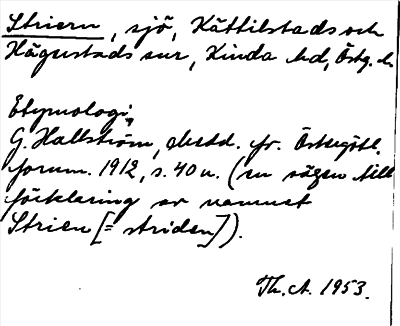 Striern, sjö, Kättilstads och
Hägerstads snr, Kinda hd, Östg. l.
Etymologi,
G. Hallström, Medd. fr. Östergötl.
fornm. 1912, s. 40 n. (en sägen till
förklaring av namnet
Strien [= striden]).
Th. A. 1953.